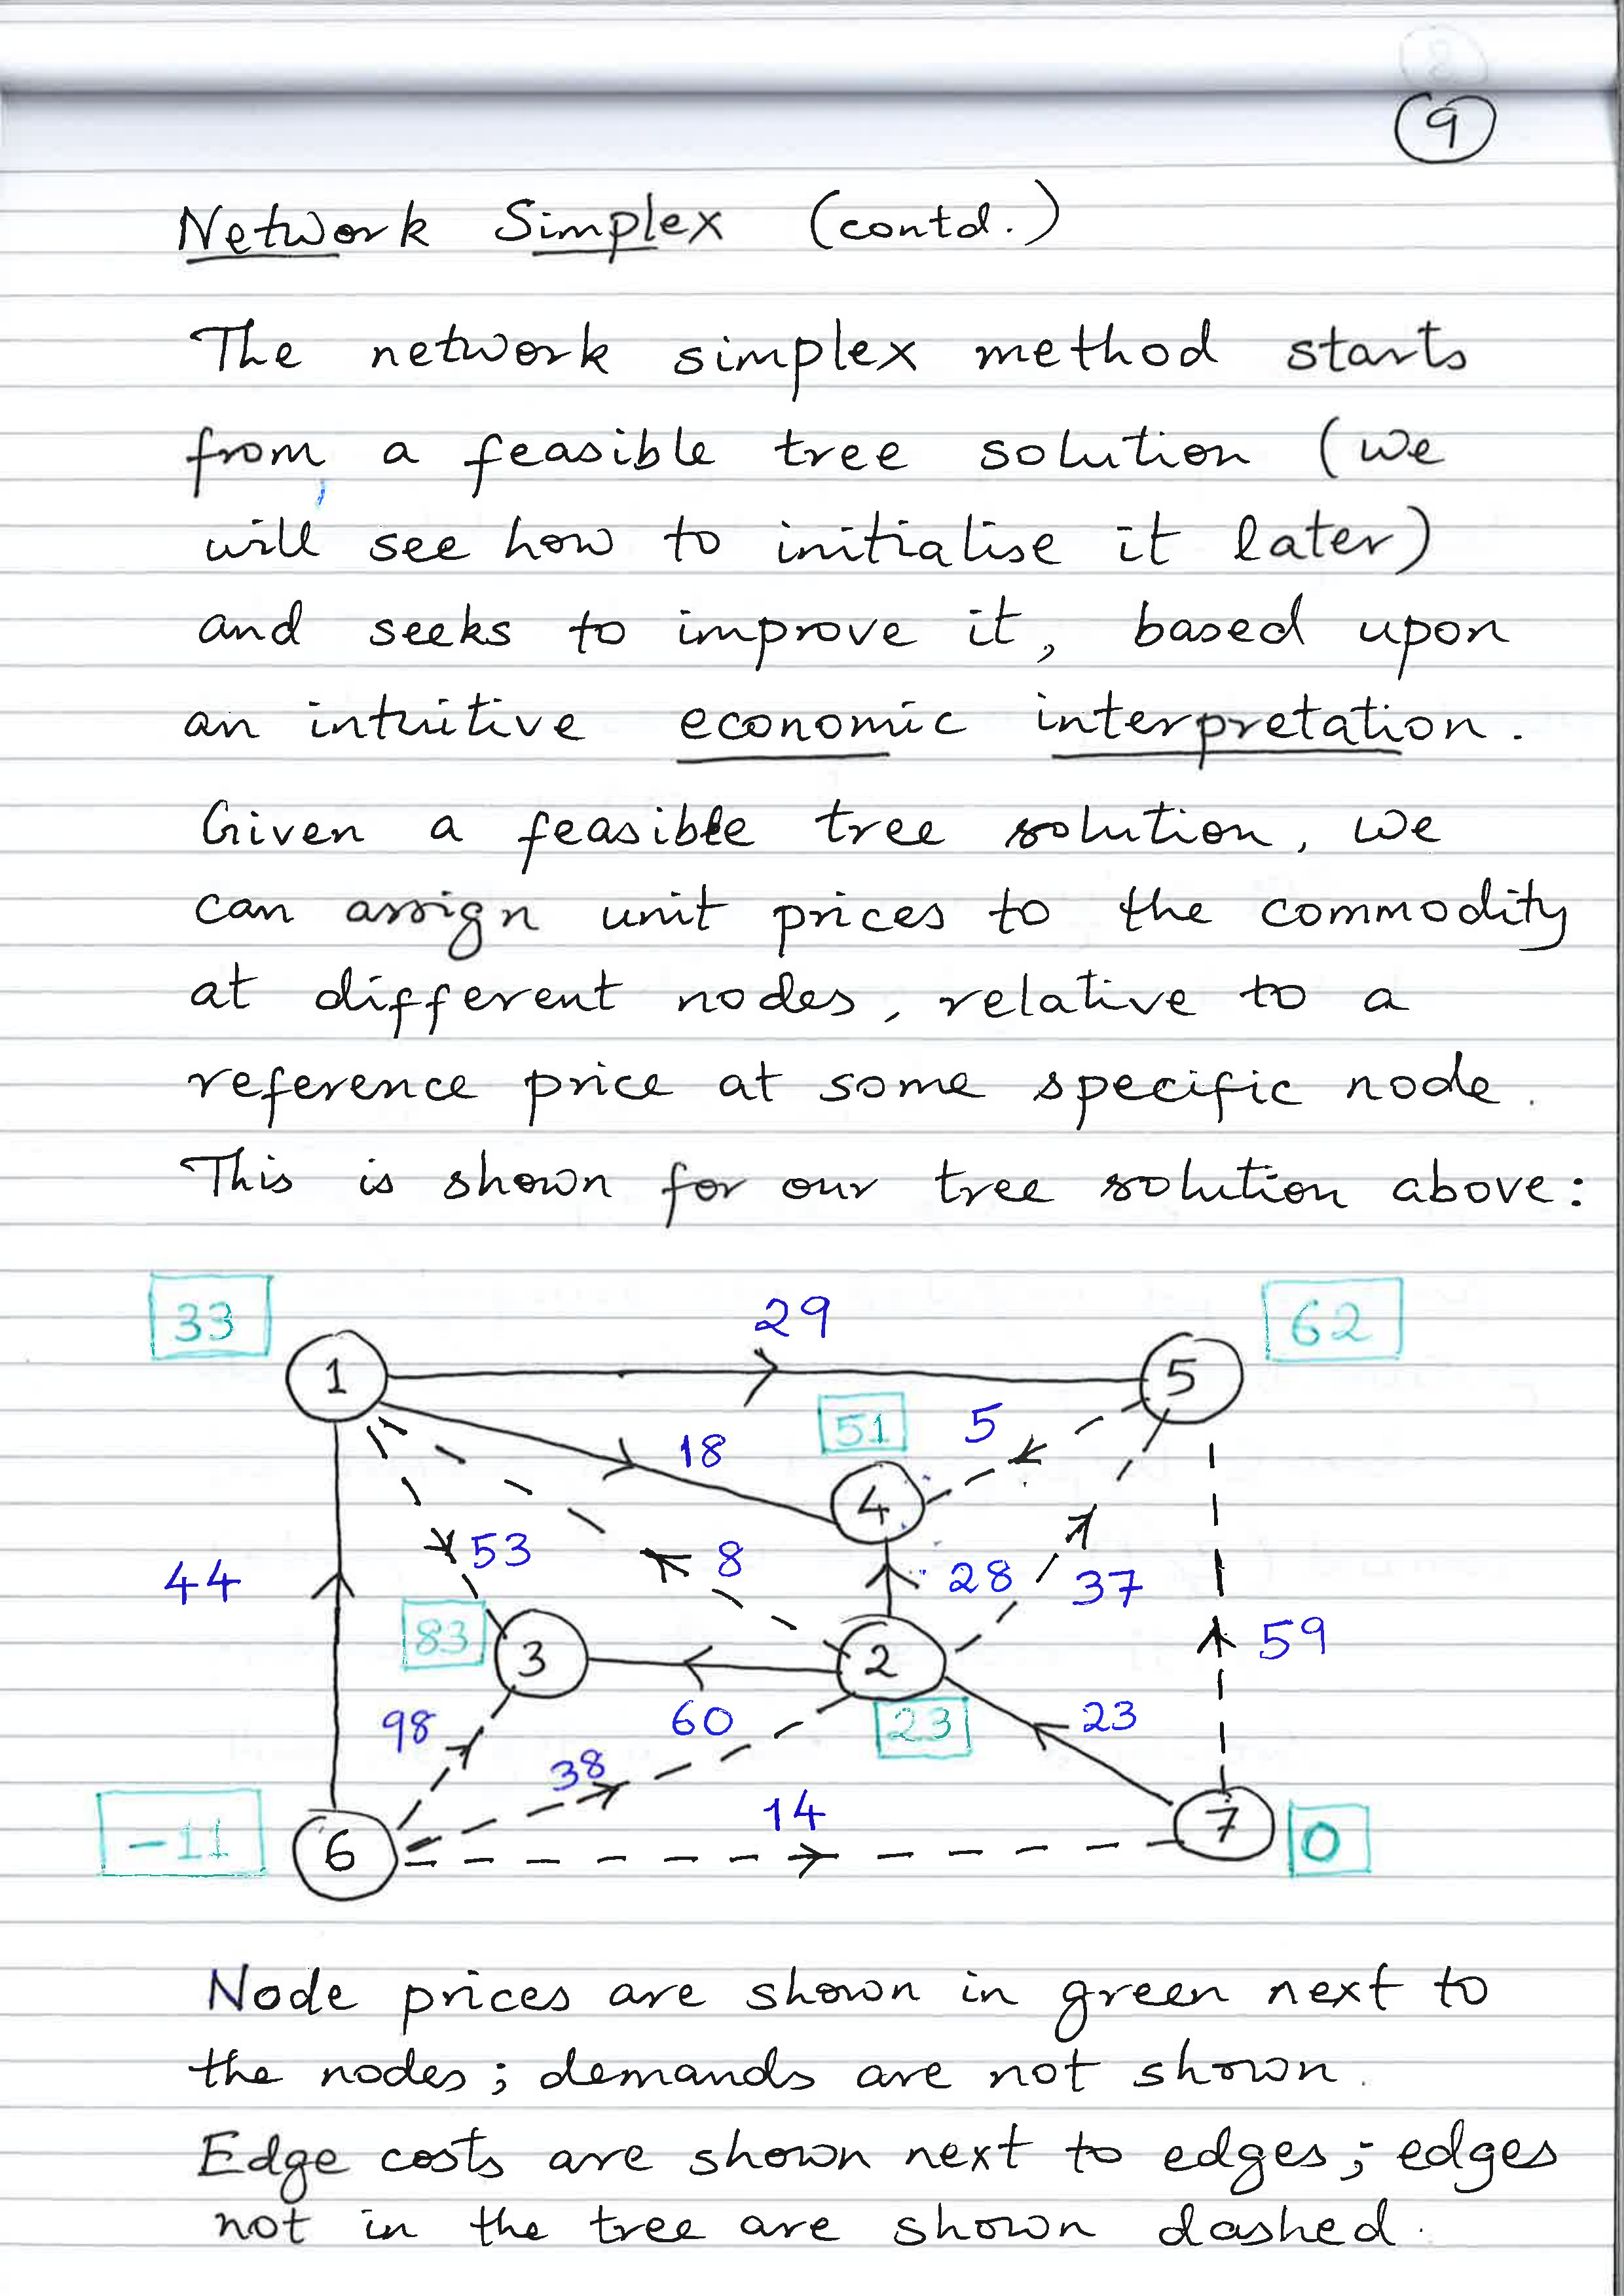 9
Network Simplex (contd.)
The network simplex method starts
from a feasible tree solution (we
will see how to initialise it later)
and seeks to improve it, based upon
an intuitive economic interpretation.
Given a feasible tree solution, we
can assign unit prices to the commodity
at different nodes, relative to a
reference price at some specific node.
This is shown for our tree solution above:
33 29 62
1 5
51 5
18
4
53 8 28 37
44
83 3 2 59
98 60 23 23
38
14
-11 6 7 0
Node prices are shown in green next to
the nodes; demands are not shown.
Edge costs are shown next to edges; edges
not in the tree are shown dashed.